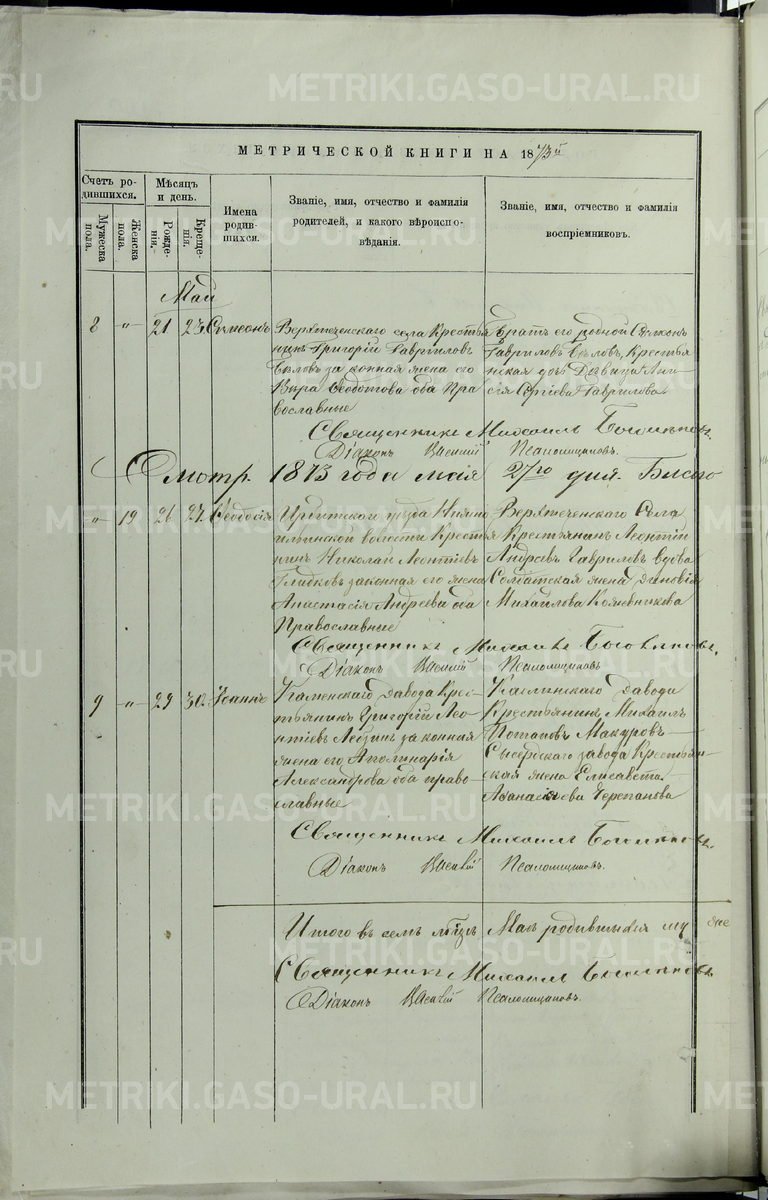 МЕТРИЧЕСКОЙ КНИГИ НА 1873й
Счетъ родившихся.
Мужеска пола.
Женска пола.
Мѣсяцъ и день.
Рожденія.
Крещенія.
Имена родившихся.
Званіе, имя, отчество и фамилія
родителей, и какого вѣроисповѣданія.
Званіе, имя, отчество и фамилія
воспріемниковъ.
Май
8 " 21 23 Симеонъ
Верхтеченскаго села Крестья
нинъ Григорій Гавриловъ
законная жена его
Вѣра Ѳедотова оба Пра
вославные
Братъ его родной
Гавриловъ Крестья
нская дочь Дѣвица
Сергіева Гаврилова
Священникъ Михаилъ
Діаконъ Василій Псаломщиковъ.
Смотр. 1873 года маія 27го дня.
" 19 26 27 Ѳеодосія
Ирбитскаго уѣзда
волости Крестья
нинъ Николай Леонтіевъ
Гладковъ законная его жена
Анастасія Андреева оба
Православные
Верхтеченскаго Села
Крестьянинъ Леонтій
Андреевъ Гавриловъ вдова
Солдатская жена Зиновія
Михайлова Кожевникова
Священникъ Михаилъ
Діаконъ Василій Псаломщиковъ
9 " 29 30 Іоаннъ
Каменскаго завода Крес-
тьянинъ Григорій Лео-
нтіевъ законная
жена его Аполинарія
Александрова оба право-
славные
Каслинскаго завода
Крестьянинъ Михаилъ
Потаповъ Макуровъ
Сысертскаго завода Крестьян-
ская жена Елисавета
Аѳанасьева Черепанова
Священникъ Михаилъ
Діаконъ Василій Псаломщиковъ.
Итого въ семъ м-цѣ Маѣ родившихся му же
Священникъ Михаилъ
Діаконъ Василій Псаломщиковъ.
METRIKI.GASO-URAL.RU